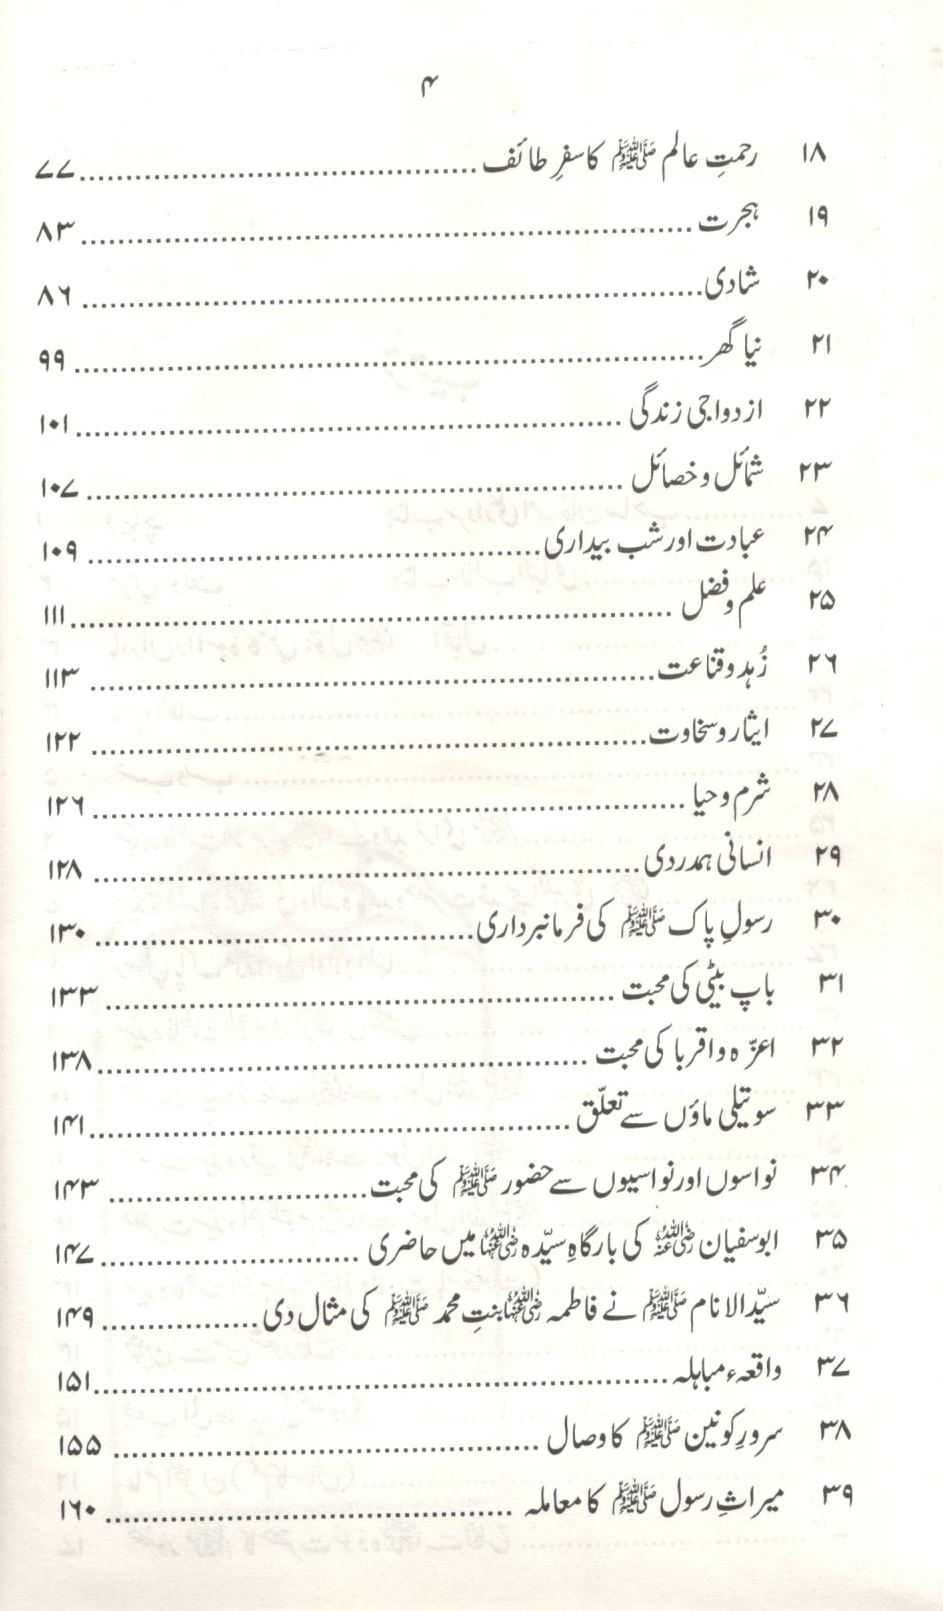 ۴
۱۸ رحمتِ عالم ﷺ کا سفرِ طائف ........ ۷۷
۱۹ ہجرت ........ ۸۳
۲۰ شادی ........ ۸۶
۲۱ نیا گھر ........ ۹۹
۲۲ ازدواجی زندگی ........ ۱۰۱
۲۳ شمائل و خصائل ........ ۱۰۷
۲۴ عبادت اور شب بیداری ........ ۱۰۹
۲۵ علم و فضل ........ ۱۱۱
۲۶ زُہد و قناعت ........ ۱۱۳
۲۷ ایثار و سخاوت ........ ۱۲۲
۲۸ شرم و حیا ........ ۱۲۶
۲۹ انسانی ہمدردی ........ ۱۲۸
۳۰ رسولِ پاک ﷺ کی فرمانبرداری ........ ۱۳۰
۳۱ باپ بیٹی کی محبت ........ ۱۳۳
۳۲ اعزّہ و اقربا کی محبت ........ ۱۳۸
۳۳ سوتیلی ماؤں سے تعلّق ........ ۱۴۱
۳۴ نواسوں اور نواسیوں سے حضور ﷺ کی محبت ........ ۱۴۳
۳۵ ابوسفیان رضی اللہ عنہ کی بارگاہِ سیّدہ رضی اللہ عنہا میں حاضری ........ ۱۴۷
۳۶ سیّد الانام ﷺ نے فاطمہ رضی اللہ عنہا بنتِ محمد ﷺ کی مثال دی ........ ۱۴۹
۳۷ واقعہء مباہلہ ........ ۱۵۱
۳۸ سرورِ کونین ﷺ کا وصال ........ ۱۵۵
۳۹ میراثِ رسول ﷺ کا معاملہ ........ ۱۶۰